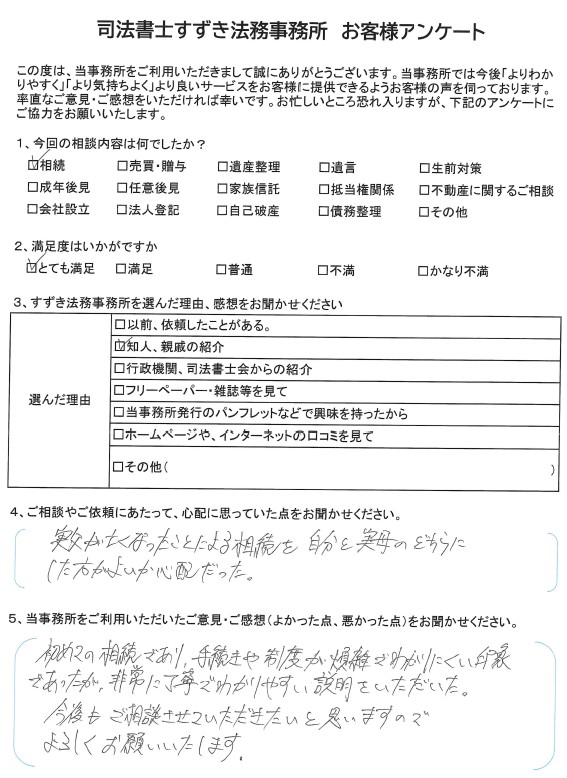 司法書士すずき法務事務所 お客様アンケート
この度は、当事務所をご利用いただきまして誠にありがとうございます。当事務所では今後「よりわか
りやすく」「より気持ちよく」より良いサービスをお客様に提供できるようお客様の声を伺っております。
率直なご意見・ご感想をいただければ幸いです。お忙しいところ恐れ入りますが、下記のアンケートに
ご協力をお願いいたします。
1、今回の相談内容は何でしたか？
☑相続 □売買・贈与 □遺産整理 □遺言 □生前対策
□成年後見 □任意後見 □家族信託 □抵当権関係 □不動産に関するご相談
□会社設立 □法人登記 □自己破産 □債務整理 □その他
2、満足度はいかがですか
☑とても満足 □満足 □普通 □不満 □かなり不満
3、すずき法務事務所を選んだ理由、感想をお聞かせください
選んだ理由
□以前、依頼したことがある。
☑知人、親戚の紹介
□行政機関、司法書士会からの紹介
□フリーペーパー・雑誌等を見て
□当事務所発行のパンフレットなどで興味を持ったから
□ホームページや、インターネットの口コミを見て
□その他( )
4、ご相談やご依頼にあたって、心配に思っていた点をお聞かせください。
実父が亡くなったことによる相続を自分と実母のどちらに
した方がよいか心配だった。
5、当事務所をご利用いただいたご意見・ご感想（よかった点、悪かった点）をお聞かせください。
初めての相続であり、手続きや制度が煩雑でわかりにくい印象
であったが、非常に丁寧でわかりやすい説明をいただいた。
今後もご相談させていただきたいと思いますので
よろしくお願いいたします。